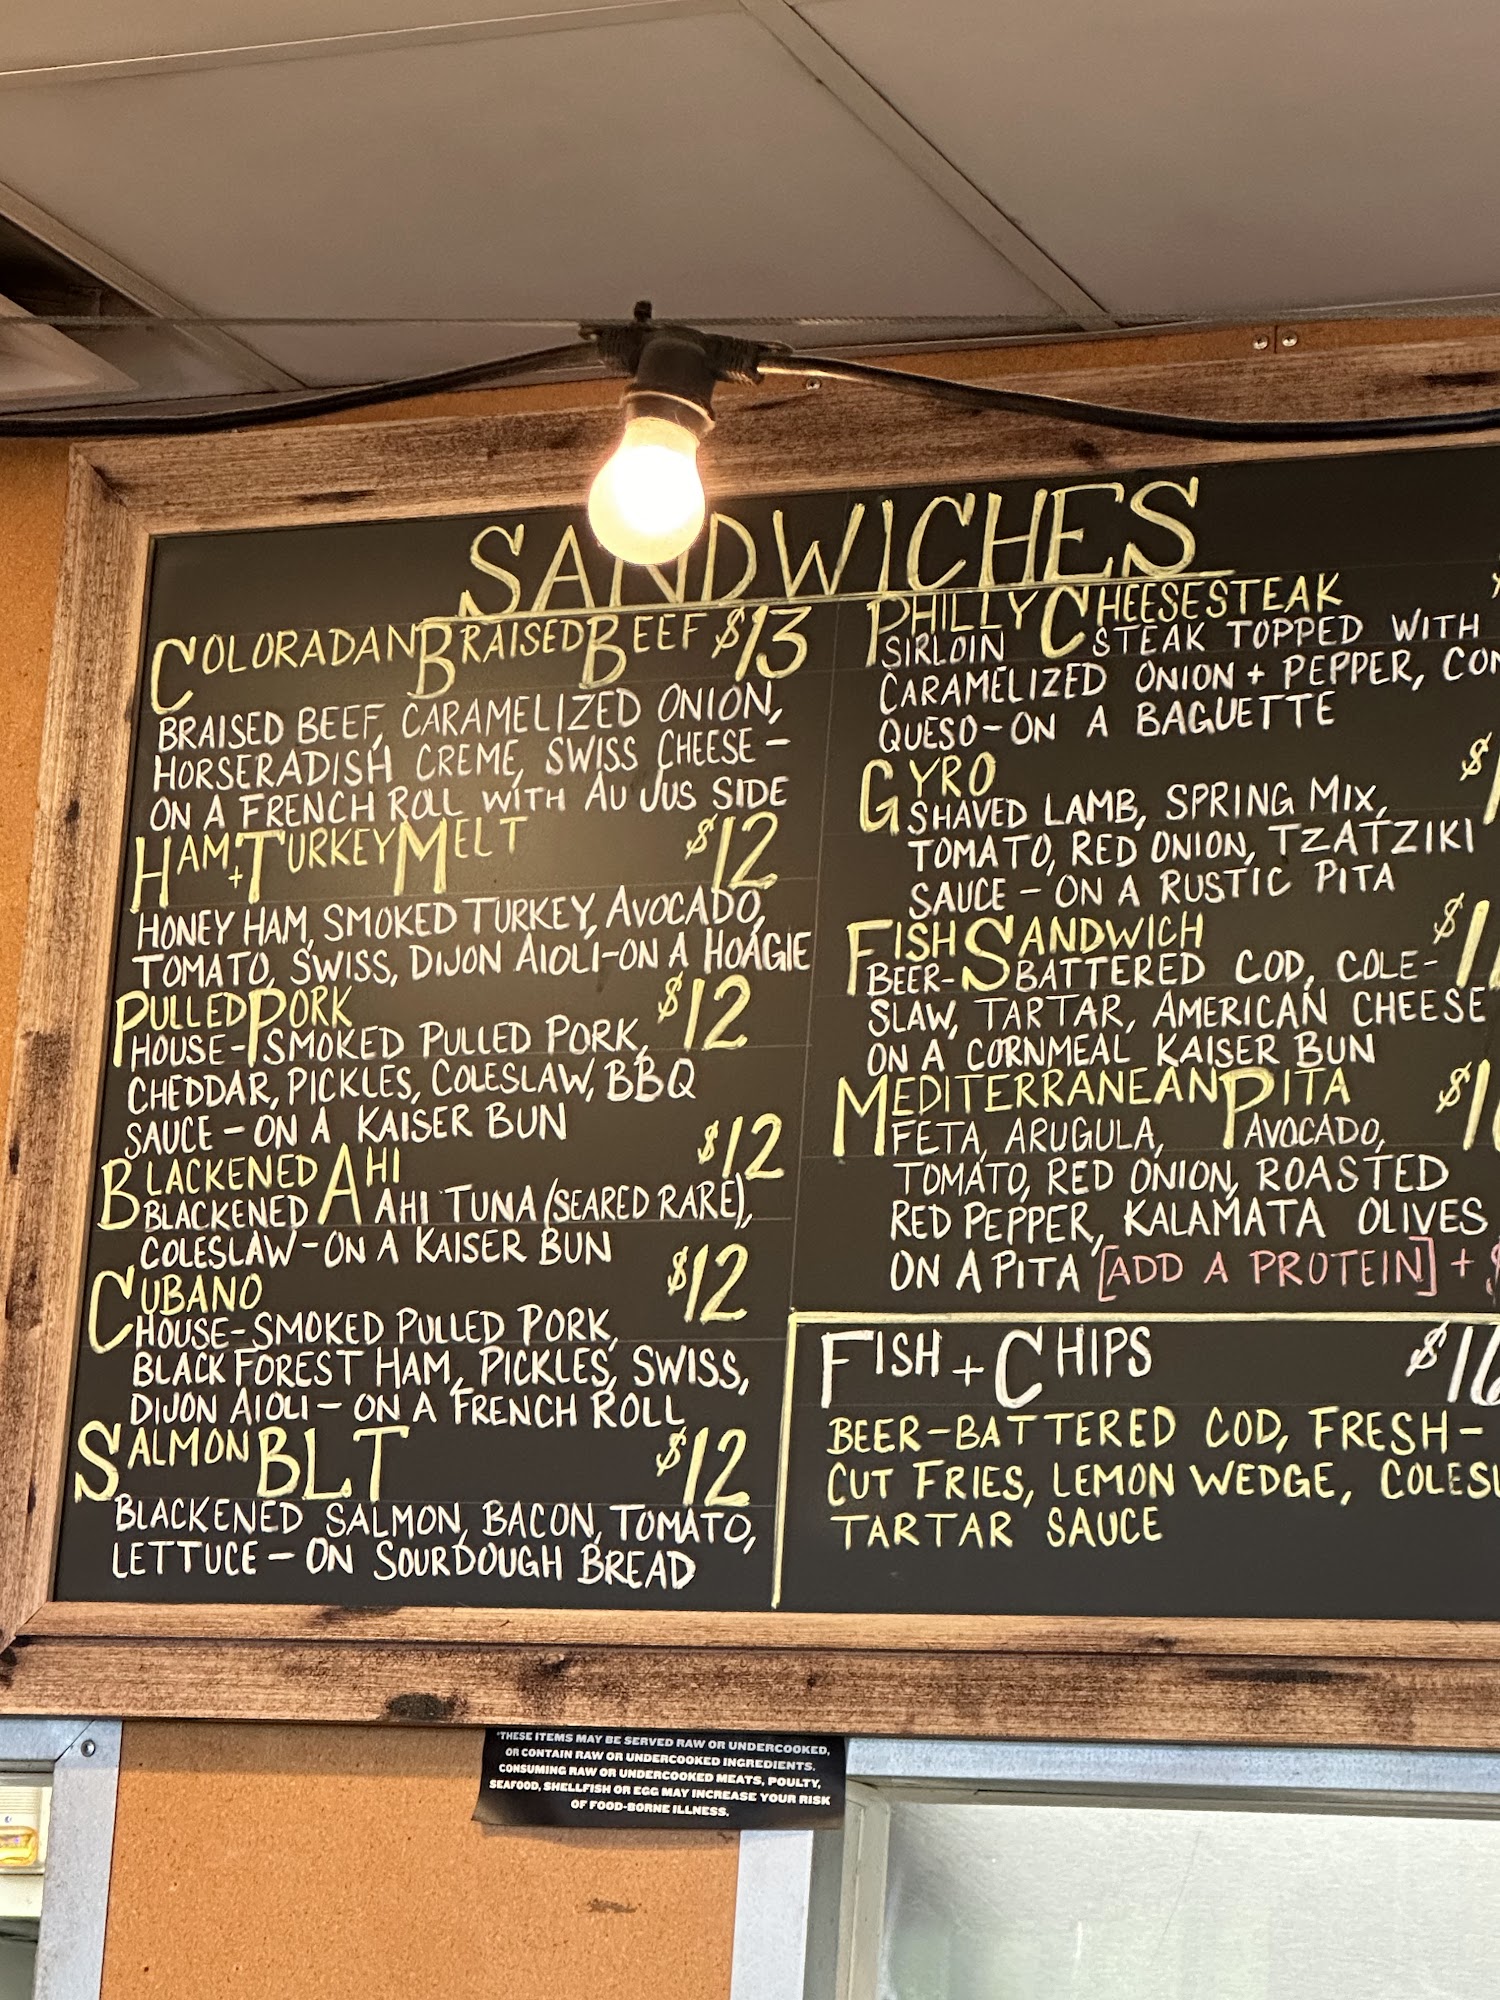 SANDWICHES
COLORADAN BRAISED BEEF $13
BRAISED BEEF, CARAMELIZED ONION,
HORSERADISH CREME, SWISS CHEESE -
ON A FRENCH ROLL WITH AU JUS SIDE
HAM + TURKEY MELT $12
HONEY HAM, SMOKED TURKEY, AVOCADO,
TOMATO, SWISS, DIJON AIOLI - ON A HOAGIE
PULLED PORK $12
HOUSE-SMOKED PULLED PORK,
CHEDDAR, PICKLES, COLESLAW, BBQ
SAUCE - ON A KAISER BUN
BLACKENED AHI $12
BLACKENED AHI TUNA (SEARED RARE),
COLESLAW - ON A KAISER BUN
CUBANO $12
HOUSE-SMOKED PULLED PORK,
BLACK FOREST HAM, PICKLES, SWISS,
DIJON AIOLI - ON A FRENCH ROLL
SALMON BLT $12
BLACKENED SALMON, BACON, TOMATO,
LETTUCE - ON SOURDOUGH BREAD
PHILLY CHEESESTEAK
SIRLOIN STEAK TOPPED WITH
CARAMELIZED ONION + PEPPER,
QUESO - ON A BAGUETTE
GYRO $
SHAVED LAMB, SPRING MIX,
TOMATO, RED ONION, TZATZIKI
SAUCE - ON A RUSTIC PITA
FISH SANDWICH $
BEER-BATTERED COD, COLE-
SLAW, TARTAR, AMERICAN CHEESE
ON A CORNMEAL KAISER BUN
MEDITERRANEAN PITA $
FETA, ARUGULA, AVOCADO,
TOMATO, RED ONION, ROASTED
RED PEPPER, KALAMATA OLIVES
ON A PITA [ADD A PROTEIN] +
FISH + CHIPS $16
BEER-BATTERED COD, FRESH-
CUT FRIES, LEMON WEDGE,
TARTAR SAUCE
*THESE ITEMS MAY BE SERVED RAW OR UNDERCOOKED,
OR CONTAIN RAW OR UNDERCOOKED INGREDIENTS.
CONSUMING RAW OR UNDERCOOKED MEATS, POULTY,
SEAFOOD, SHELLFISH OR EGG MAY INCREASE YOUR RISK
OF FOOD-BORNE ILLNESS.